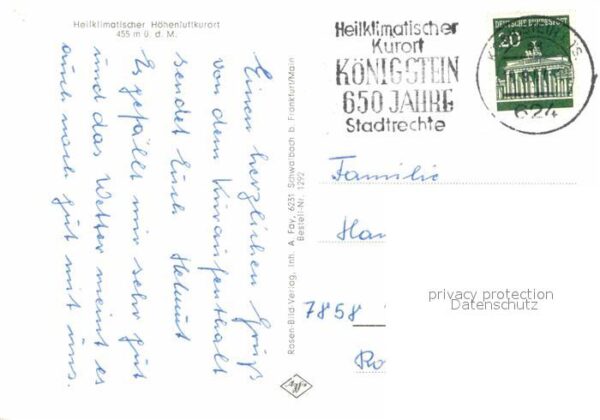 Heilklimatischer Höhenluftkurort
455 m ü. d. M.
Einen herzlichen Gruß
von dem Kuraufenthalt
sendet Euch Helmut
Es gefällt mir sehr gut
und das Wetter meint es
auch noch gut mit uns.
Rosen-Bild-Verlag, Inh. A. Fay, 6231 Schwalbach b. Frankfurt/Main
Bestell-Nr. 1292
Agfa
Heilklimatischer
Kurort
KÖNIGSTEIN
650 JAHRE
Stadtrechte
DEUTSCHE BUNDESPOST
20
624
Familie
Han
7858
Ro
privacy protection
Datenschutz